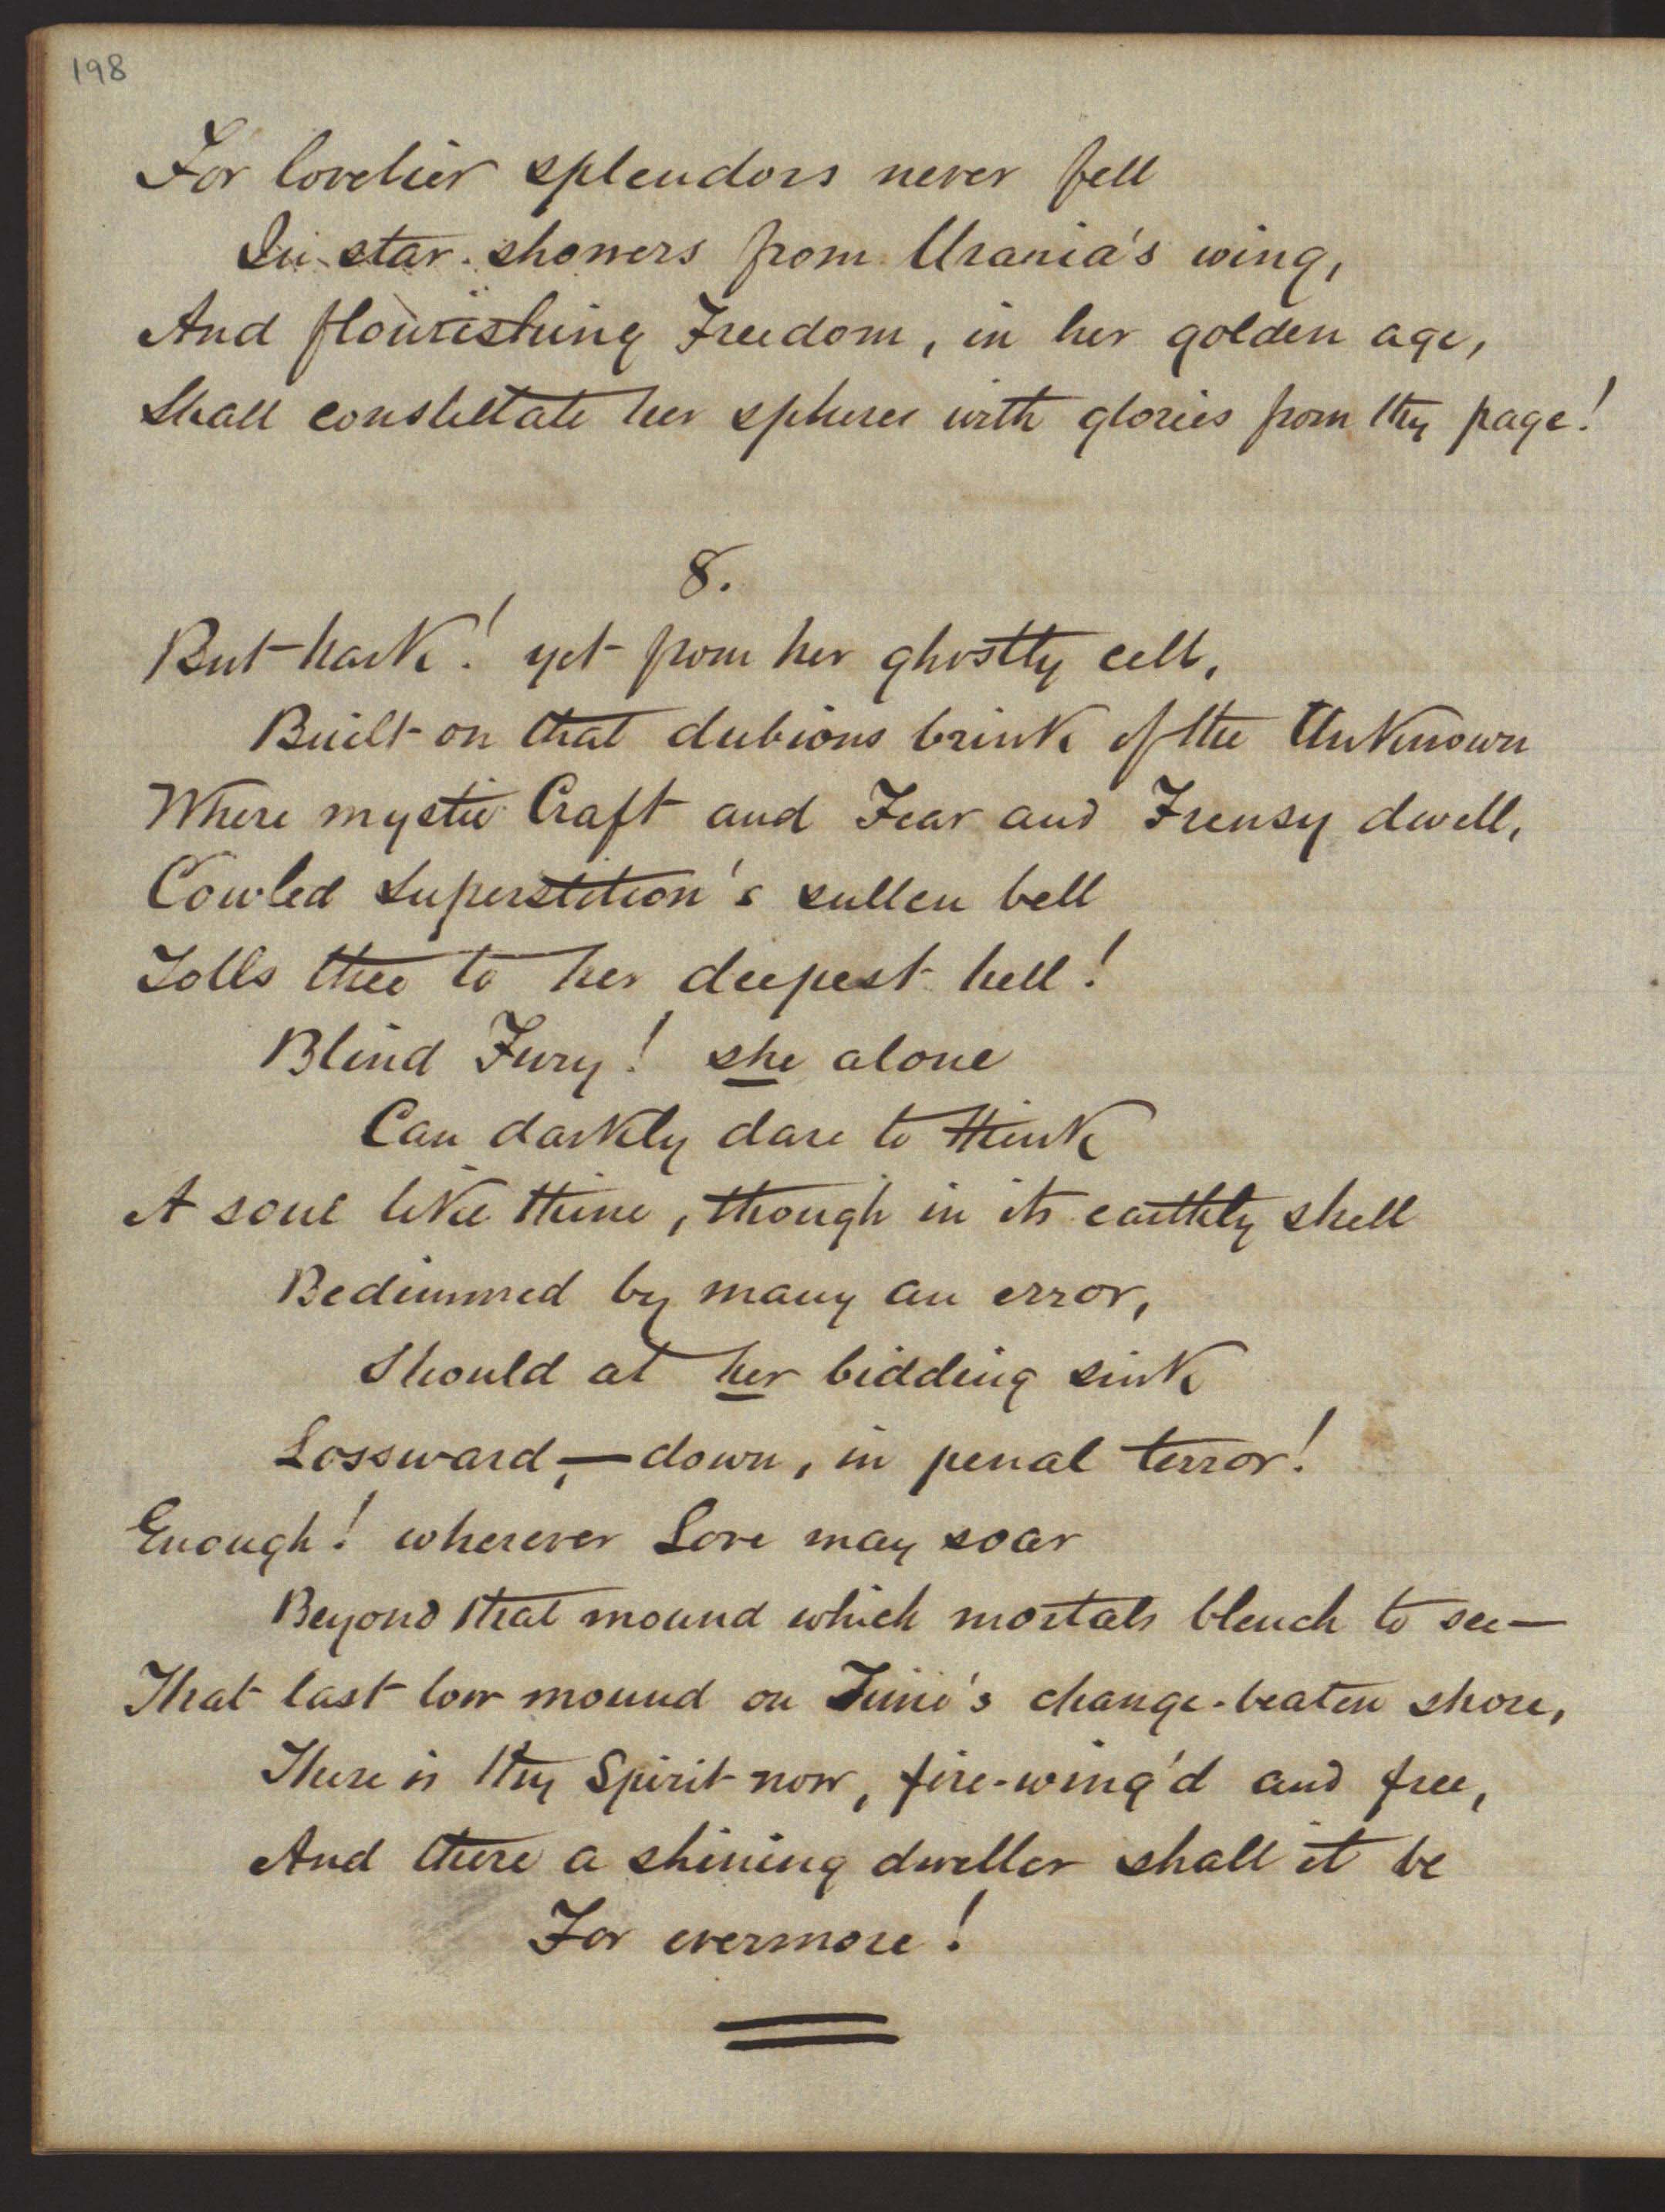 198
For lovelier splendors never fell
In star-showers from Urania's wing,
And flourishing Freedom, in her golden age,
Shall constellate her spheres with glories from thy page!
8.
But hark! yet from her ghostly cell,
Built on that dubious brink of the Unknown
Where mystic Craft and Fear and Frensy dwell,
Cowled Superstition's sullen bell
Tolls thee to her deepest hell!
Blind Fury! she alone
Can darkly dare to think
A soul like thine, though in its earthly shell
Bedimmed by many an error,
Should at her bidding sink
Lossward,—down, in penal terror!
Enough! wherever Love may soar
Beyond that mound which mortals blench to see—
That last low mound on Time's change-beaten shore,
There is thy Spirit now, fire-wing'd and free,
And there a shining dweller shall it be
For evermore!